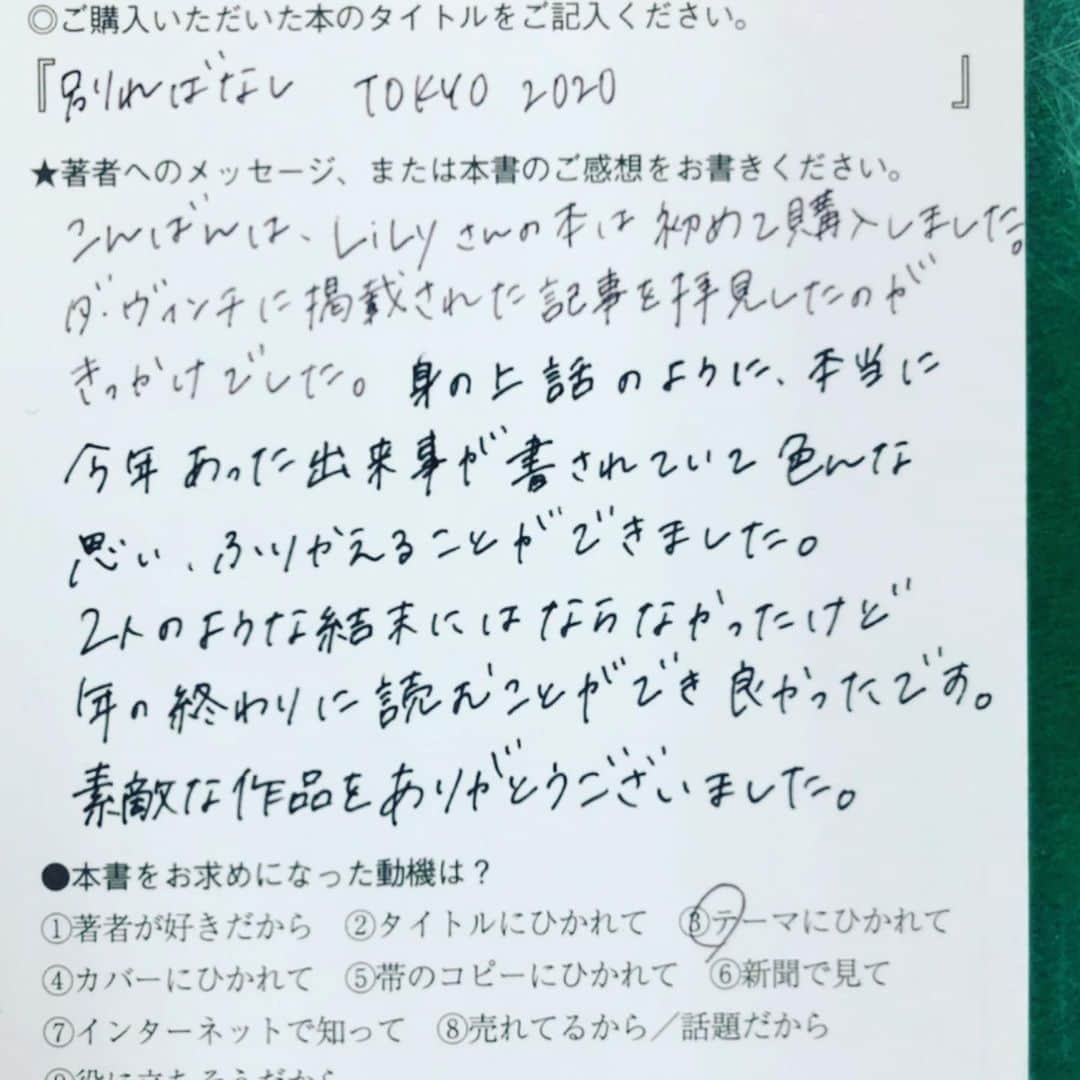 ◎ご購入いただいた本のタイトルをご記入ください。
『別ればなし TOKYO 2020 』
★著者へのメッセージ、または本書のご感想をお書きください。
こんばんは、LiLyさんの本は初めて購入しました。
ダ・ヴィンチに掲載された記事を拝見したのが
きっかけでした。身の上話のように、本当に
今年あった出来事が書されていて色んな
思い、ふりかえることができました。
2人のような結末にはならなかったけど
年の終わりに読むことができ良かったです。
素敵な作品をありがとうございました。
●本書をお求めになった動機は？
①著者が好きだから ②タイトルにひかれて ③テーマにひかれて
④カバーにひかれて ⑤帯のコピーにひかれて ⑥新聞で見て
⑦インターネットで知って ⑧売れてるから／話題だから
⑨役に立ちそうだから